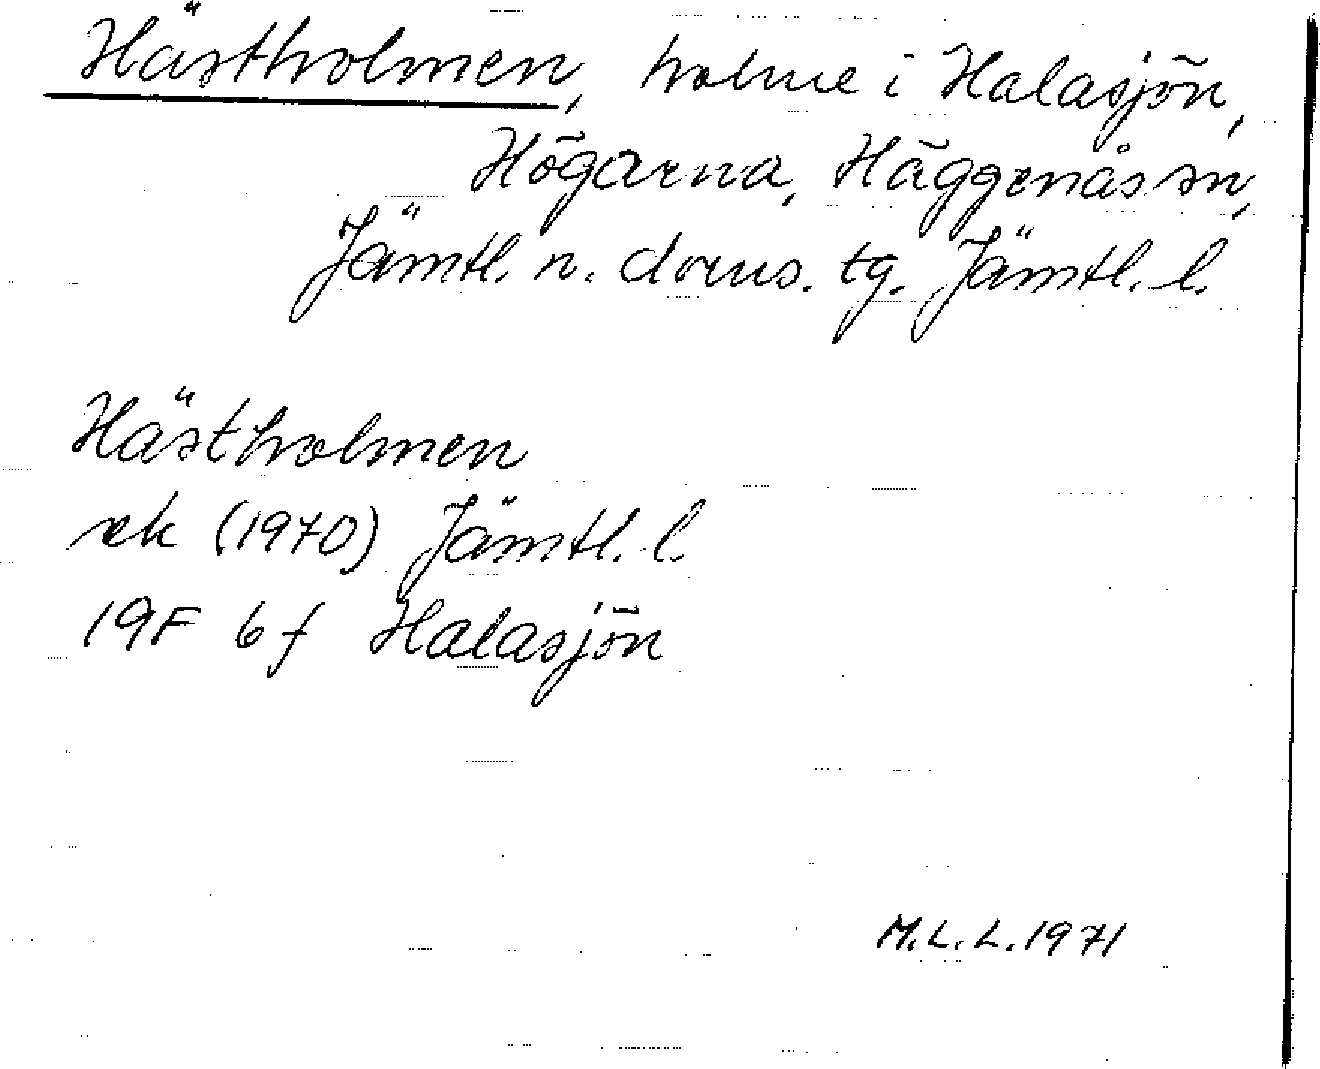 Hästholmen, holme i Halasjön,
Högarna, Häggenås sn,
Jämtl. n. doms. tg. Jämtl. l.
Hästholmen
ek (1970) Jämtl. l.
19F 6 f Halasjön
M.L.L. 1971